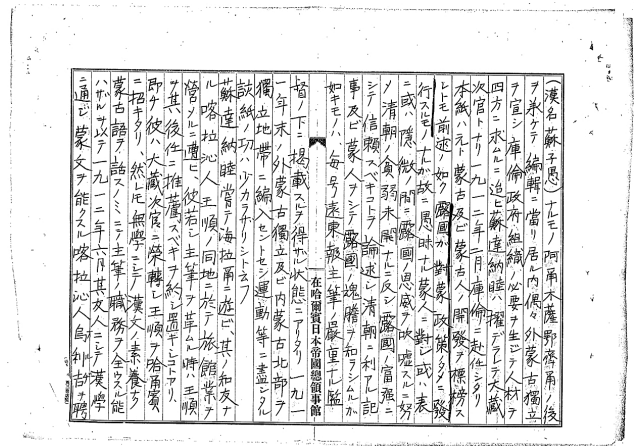 (漢名蘇子愚)ナルモノ阿甬木薩鄂齊甬ノ後
ヲ承ケテ編輯ニ當リ居ル内偶々外蒙古獨立
ヲ宣シ庫倫政府ノ組織ノ必要ヲ生ジテ人材ヲ
四方ニ求ムルニ迨ビ蘇達納睦ハ擢デラレテ大藏
次官トナリ一九一二年二月庫倫ニ赴任シタリ
本紙ハ元ト蒙古及ビ蒙古人ノ開發ヲ標榜ス
レトモ前述ノ如ク露國ガ對蒙政策ノタメニ發
行スルモノナルガ故ニ愚昧ナル蒙人ニ對シ或ハ表
ニ或ハ隱微ノ間ニ露國ノ恩威ヲ吹噓スルニ努
メ清朝ノ貪弱未開ナルニ反シ露國ノ富強ニ
シテ信賴スベキコトヲ論述シ清朝ニ利アル記
事及ビ蒙人ヲシテ露國ノ魂膽ヲ知ラシムルガ
如キモノハ每号遠東報主筆ノ嚴重ナル監
在哈爾賓日本帝國總領事館
督ノ下ニ揭載スルヲ得ザル狀態ニアリタリ一九一
一年末ノ外蒙古獨立及ビ内蒙古北部ヲ
獨立地帶ニ編入セントセシ運動等ニ盡シタル
該紙ノ功ハ少カラザリシト云フ
蘇達納睦嘗テ海拉甬ニ遊ビ、其ノ和友ナ
ル喀拉沁人王順ノ同地ニ於テ旅館業ヲ
營メルニ遭ヒ、彼若シ主筆ヲ草ムル時ハ王順
ヲ其後任ニ推薦スベキヲ約シ置キシコトアリ、
即チ彼ハ大藏次官ニ榮轉シ王順ヲ哈甬賓
ニ招キタリ然レモ無學ニシテ漢文ノ素養ナク
蒙古語ヲ話スノミニテ主筆ノ職務ヲ全ウスル能
ハザルヲ以テ一九一二年六月其友人ニシテ漢學
ニ通ジ蒙文ヲ能クスル喀拉沁人烏利吉ヲ聘